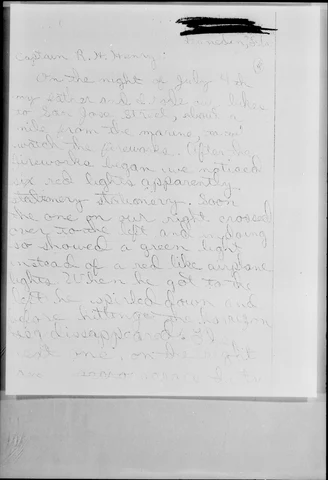 Captain R. H. Henry:
On the night of July 4th
my sister and I rode our bikes
to San Jose Street, about a
mile from the marine, to
watch the fireworks. After the
fireworks began we noticed
six red lights apparently
stationery stationery. Soon
the one on our right crossed
over to the left and in doing
so showed a green light
instead of a red like airplane
lights. When he got to the
left he spirled down and
before hitting the horizon
disappeared.
next one, on the right